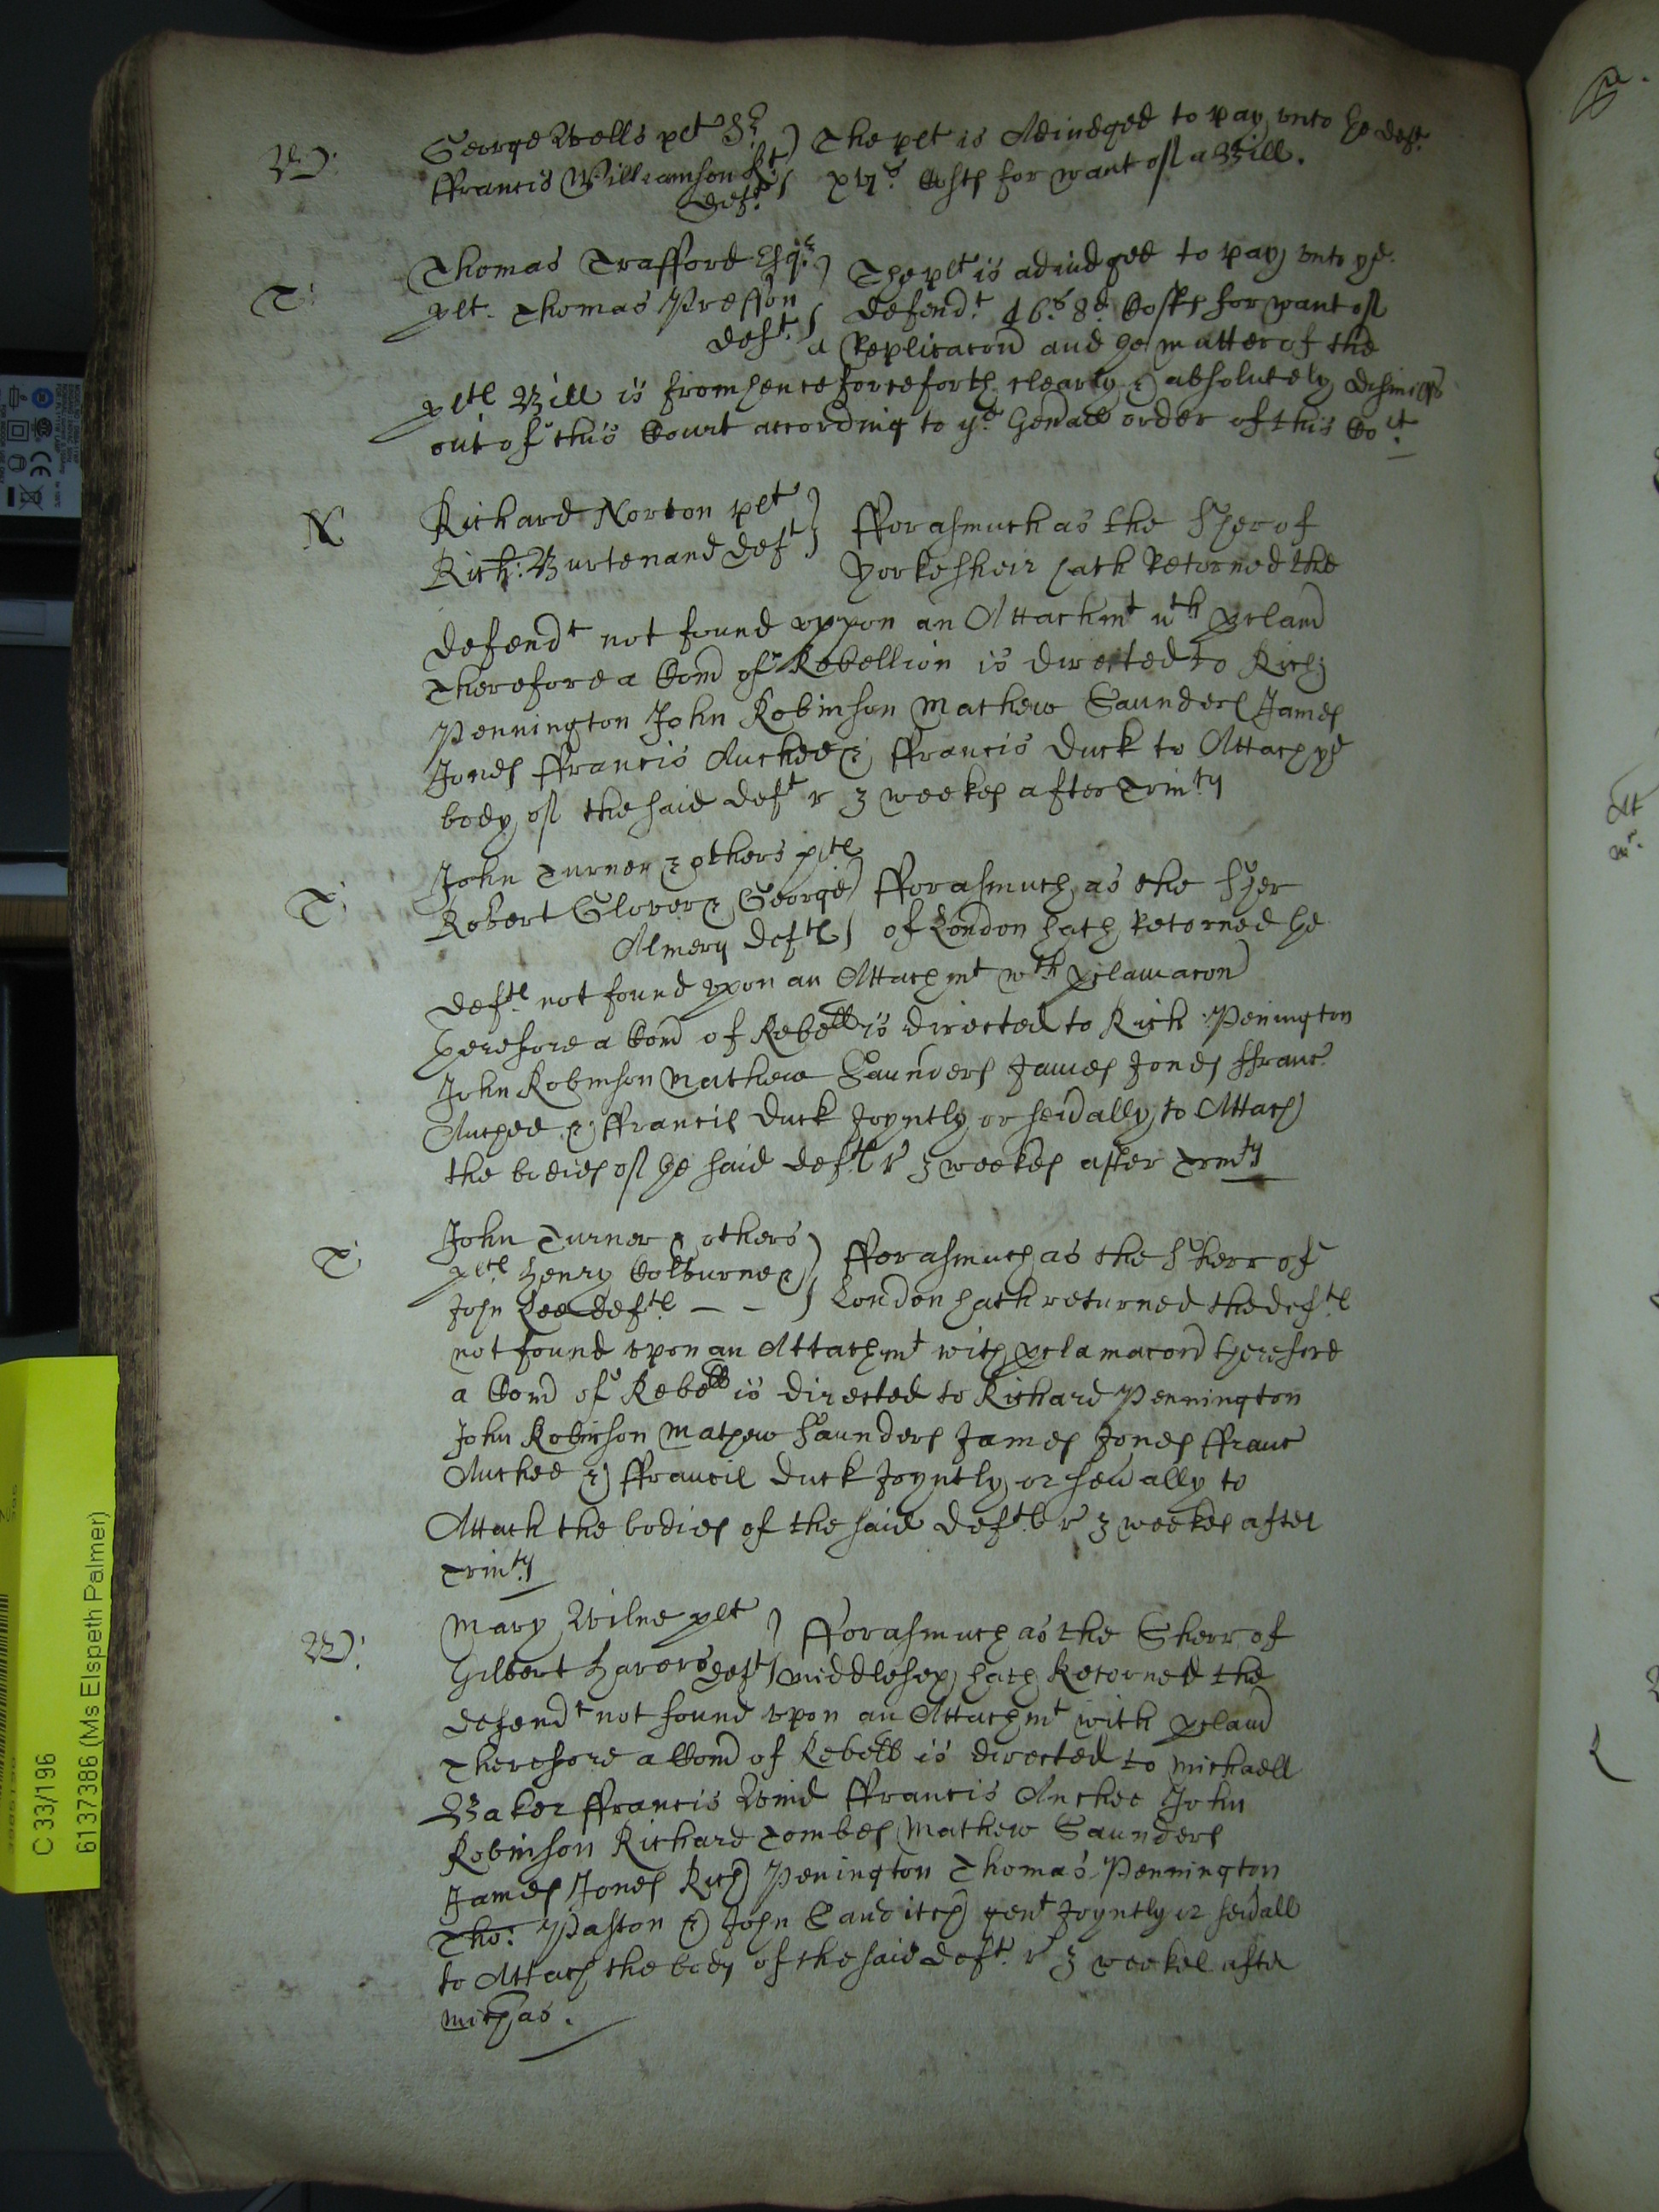 W:
George Wells plt Sr
ffrancis Williamson Kt
deft.
The plt is Adiudged to pay vnto he deft.
Costs for want of a Bill.
T:
Thomas Trafford Esqr.
plt. Thomas Presson
deft.
The plt is adiudged to pay vnto ye
defendt. 46s. 8d. Costs for want of
a Replicacon and he matter of the
pltes Bill is from henceforceforth clearly & absolutely dismiss
out of this Court according to ye Genall order of this Cort.
N
Richard Norton plt
Rich: Burtenand deft
fforasmuch as the Sher of
Yorkesheir hath Retorned the
defendt not found vppon an Attachmt wth proclam
Therefore a Com of Rebellion is directed to Rich
Pennington John Robinson Mathew Saunders James
Jones ffrancis Auckee & ffrancis Duck to Attach ye
body of the said deft r 3 weekes after Trinty
T:
John Turner & others pltes
Robert Glover & George
Almery deftes
fforasmuch as the Sher
of London hath Retorned he
deftes not found vpon an Attachmt wth proclamacon
herefore a Com of Rebell is directed to Rich Penington
John Robinson Mathew Saunders James Jones ffranc
Auchee & ffrancis Duck Joyntly or seually to Attach
the bodies of he said deftes r 3 weekes after Trinty
T
John Turner & others
pltes Henry Colburne &
John Lee deftes — —
fforasmuch as the Sherr of
London hath returned the deftes
not found vpon an Attachmt with proclamacon therefore
a Com of Rebell is directed to Richard Pennington
John Robinson Mathew Saunders James Jones ffranc
Auchee & ffrancis Duck Joyntly or seually to
Attach the bodies of the said deftes r 3 weekes after
Trinty
W:
Mary Wilne plt
Gilbert Havers deft
fforasmuch as the Sherr of
Middlesex hath Retorned the
defendt not found vpon an Attachmt with proclam
Therefore a Com of Rebell is directed to Michaell
Baker ffrancis Wind ffrancis Anchee John
Robinson Richard Tombes Mathew Saunders
James Jones Rich Penington Thomas Pennington
Tho: Paston & John gent Joyntly or seuall
to Attach the body of the said deft. r 3 weekes after
Michas.
C 33/196
6137386 (Ms Elspeth Palmer)